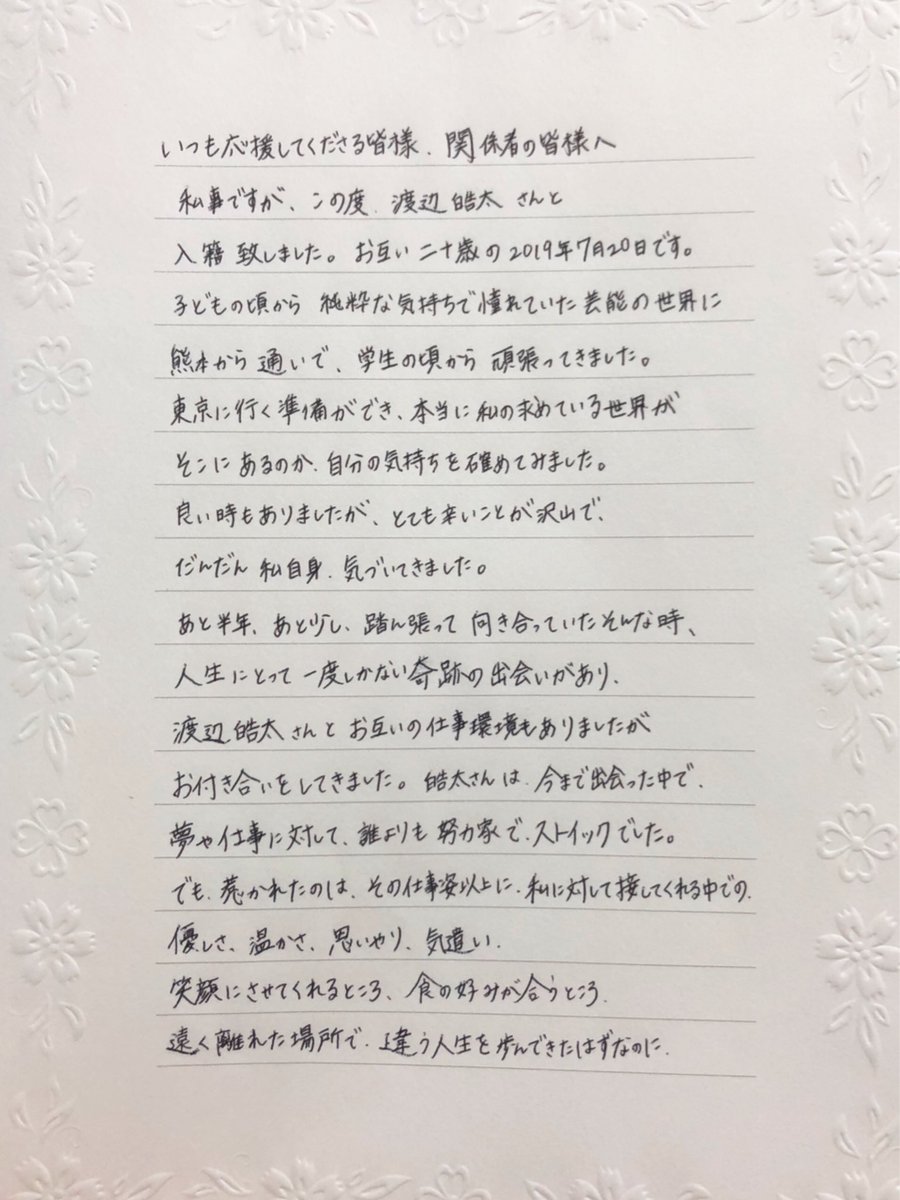 いつも応援してくださる皆様、関係者の皆様へ
私事ですが、この度、渡辺皓太さんと
入籍致しました。お互い二十歳の2019年7月20日です。
子どもの頃から純粋な気持ちで憧れていた芸能の世界に
熊本から通いで、学生の頃から頑張ってきました。
東京に行く準備ができ、本当に私の求めている世界が
そこにあるのか、自分の気持ちを確めてみました。
良い時もありましたが、とても辛いことが沢山で、
だんだん私自身、気づいてきました。
あと半年、あと少し、踏ん張って向き合っていたそんな時、
人生にとって一度しかない奇跡の出会いがあり、
渡辺皓太さんとお互いの仕事環境もありましたが
お付き合いをしてきました。皓太さんは、今まで出会った中で、
夢や仕事に対して、誰よりも努力家で、ストイックでした。
でも、惹かれたのは、その仕事姿以上に、私に対して接してくれる中での、
優しさ、温かさ、思いやり、気遣い、
笑顔にさせてくれるところ、食の好みが合うところ、
遠く離れた場所で、違う人生を歩んできたはずなのに、